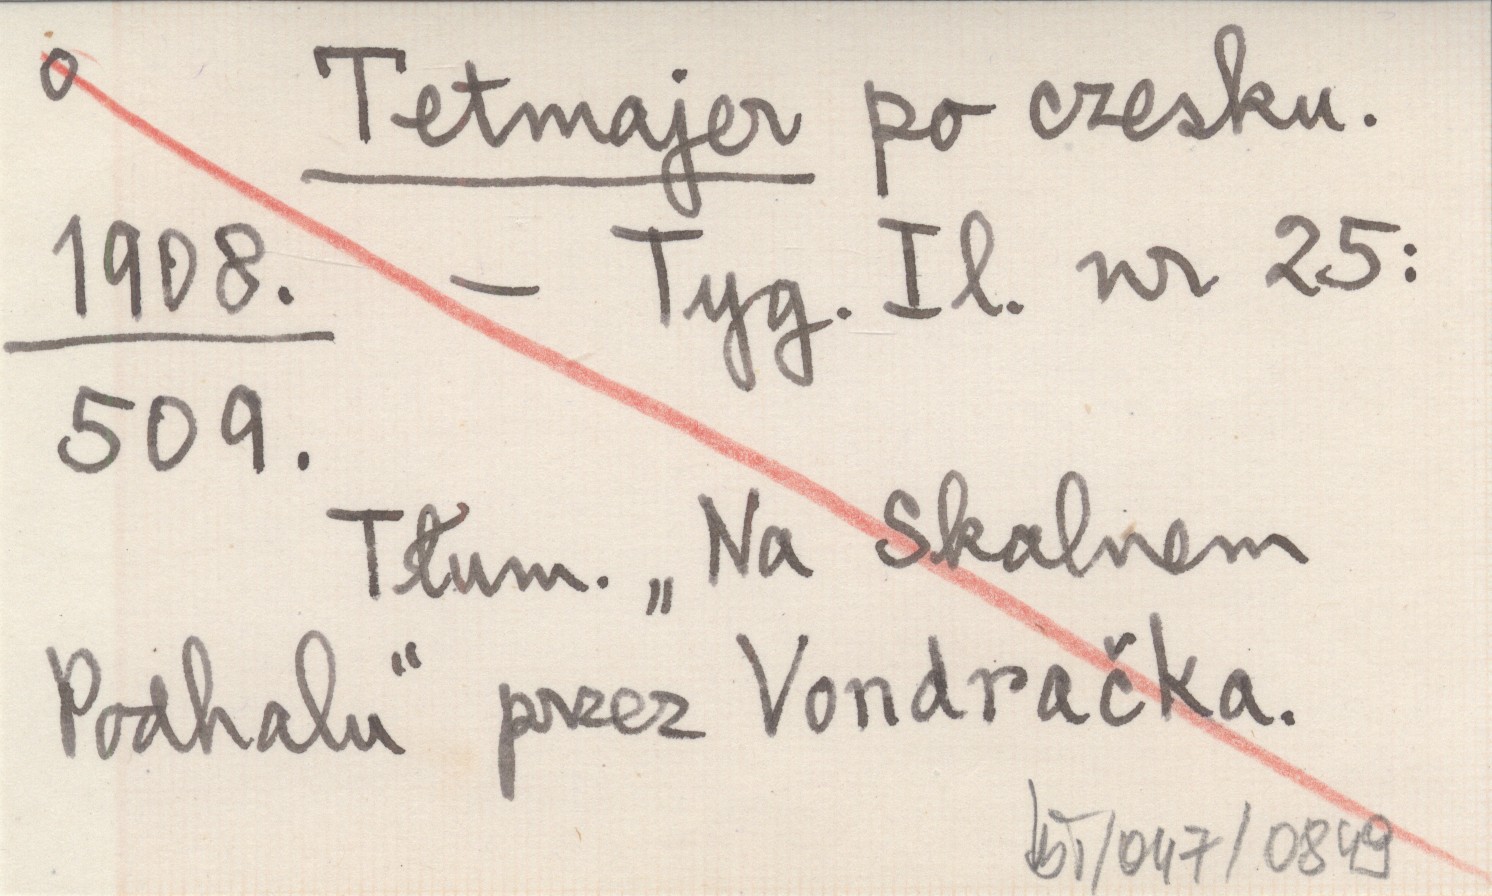 o Tetmajer po czesku.
1908. – Tyg. Il. nr 25:
509.
Tłum. „Na Skalnem
Podhalu“ przez Vondračka.
/047/0849